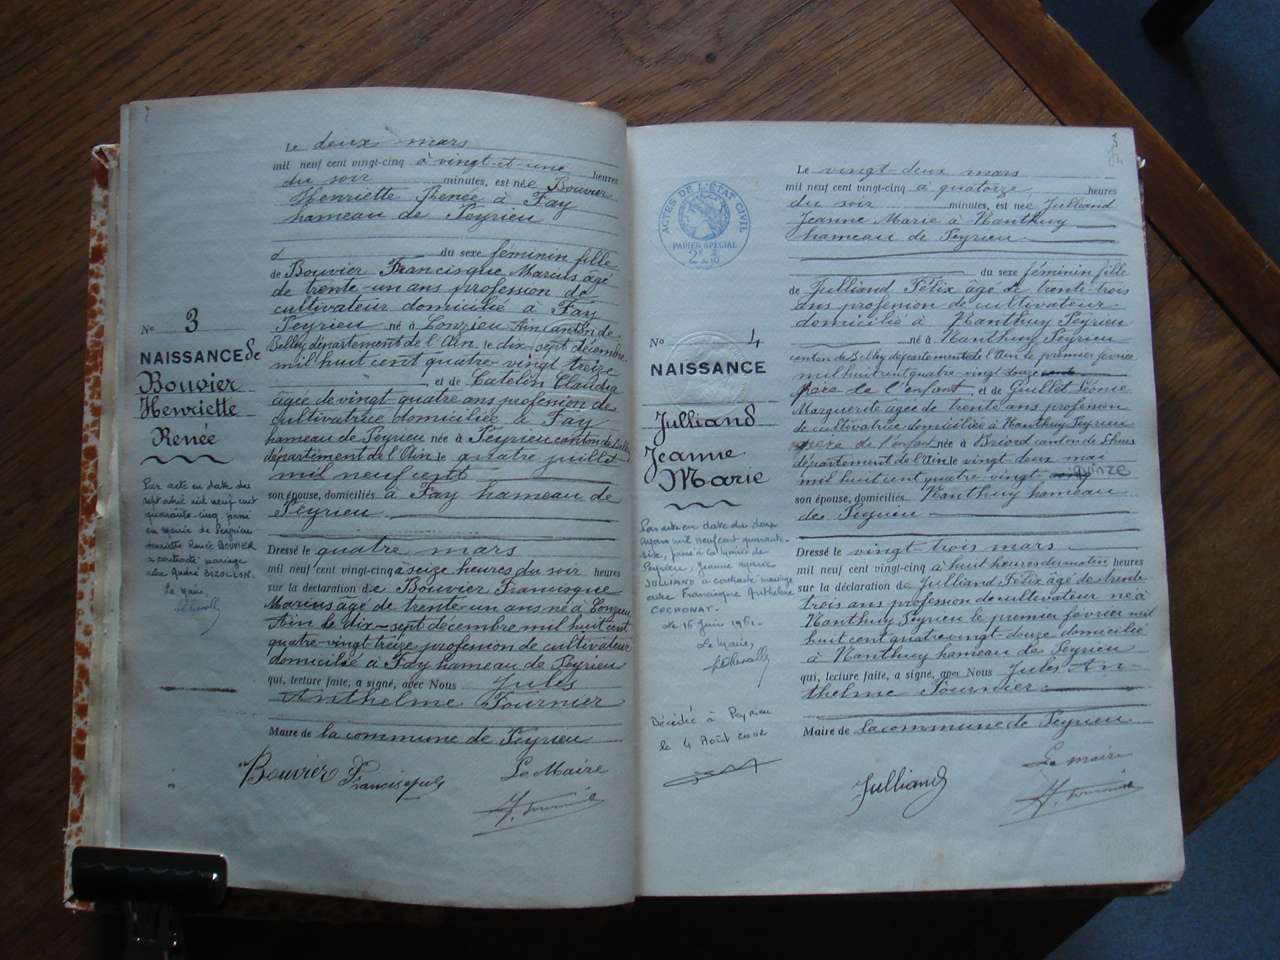 Le deux mars
mil neuf cent vingt-cinq à vingt-et-une heures
du soir minutes, est née Bouvier
Henriette Renée à Fay
hameau de Peyrieu
d du sexe féminin fille
de Bouvier Francisque Marius âgé
de trente-un ans profession de
cultivateur domicilié à Fay
Peyrieu né à Ain canton de
Belley département de l'Ain le dix sept décembre
mil huit cent quatre vingt treize
, et de Catelin Claudia
âgée de vingt quatre ans profession de
cultivatrice domiciliée à Fay
hameau de Peyrieu née à Peyrieu canton de Belley
département de l'Ain le quatre juillet
mil neuf cent
son épouse, domiciliés à Fay hameau de
Peyrieu
Dressé le quatre mars
mil neuf cent vingt-cinq à seize heures du soir heures
sur la déclaration de Bouvier Francisque
Marius âgé de trente-un ans né à
Ain le dix-sept décembre mil huit cent
quatre-vingt treize profession de cultivateur
domicilié à Fay hameau de Peyrieu
qui, lecture faite, a signé, avec Nous Jules
Anthelme Fournier
Maire de la commune de Peyrieu
Bouvier Francisque
Le Maire
No 3
NAISSANCE de
Bouvier
Henriette
Renée
Par acte en date du
sept avril mil neuf cent
quarante-cinq passé
en mairie de Peyrieu
Henriette Renée BOUVIER
a contracté mariage
avec André BIZOLLON.
Le Maire,
3
ACTES DE L'ÉTAT CIVIL
PAPIER SPÉCIAL
Le vingt deux mars
mil neuf cent vingt-cinq à quatorze heures
du soir minutes, est née Julliand
Jeanne Marie à Nanthuy
hameau de Peyrieu
du sexe féminin fille
de Julliand Félix âgé de trente trois
ans profession de cultivateur
domicilié à Nanthuy Peyrieu
né à Nanthuy Peyrieu
canton de Belley département de l'Ain le premier février
mil huit cent quatre vingt douze
père de l'enfant, et de Guillet Léonie
Marguerite âgée de trente ans profession
de cultivatrice domiciliée à Nanthuy Peyrieu
mère de l'enfant née à Briord canton de Lhuis
département de l'Ain, le vingt deux mai
mil huit cent quatre vingt quinze
son épouse, domiciliés Nanthuy hameau
de Peyrieu
Dressé le vingt-trois mars
mil neuf cent vingt-cinq à huit heures du matin heures
sur la déclaration de Julliand Félix âgé de trente
trois ans profession de cultivateur né à
Nanthuy Peyrieu le premier février mil
huit cent quatre vingt-douze domicilié
à Nanthuy hameau de Peyrieu
qui, lecture faite, a signé, avec Nous Jules An-
thelme Fournier
Maire de la commune de Peyrieu
Le maire
Julliand
No 4
NAISSANCE
Julliand
Jeanne
Marie
Par acte en date du deux
mars mil neuf cent quarante-
six, passé à la mairie de
Peyrieu, Jeanne Marie
JULLIAND a contracté mariage
avec Francisque Anthelme
COCHONAT.
Le Maire,
Décédée à Peyrieu
le 4 Août 2002